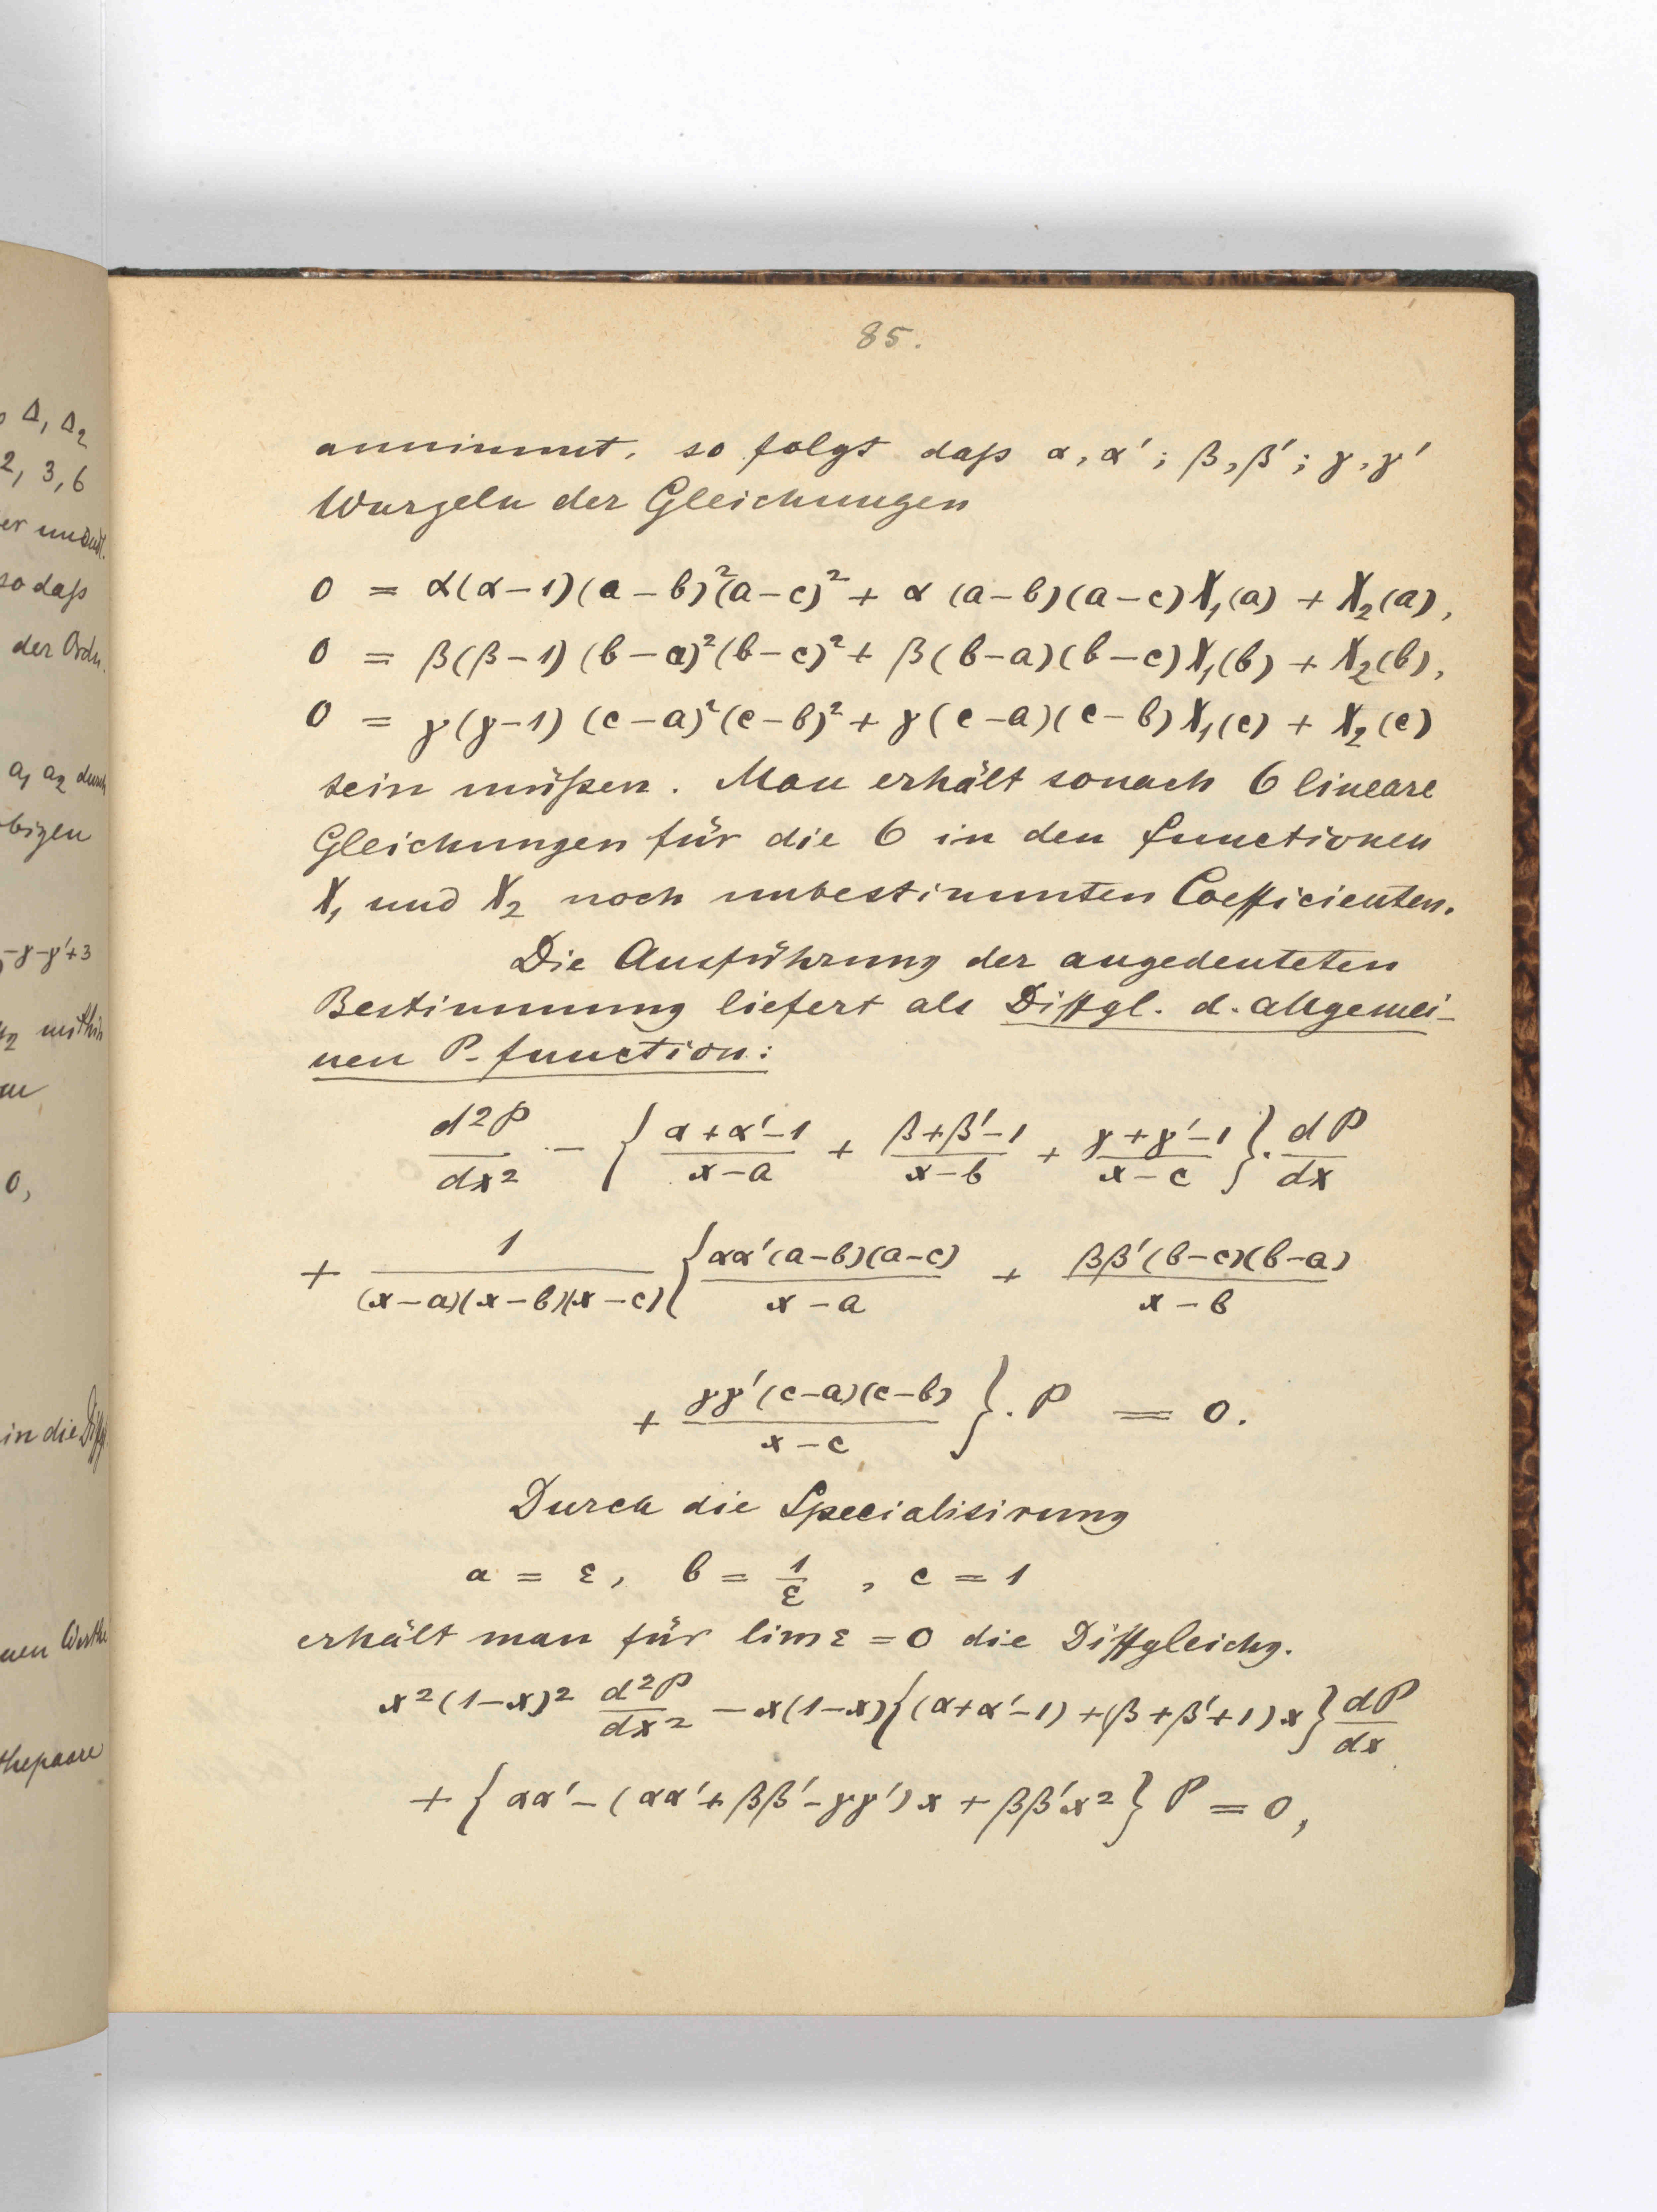 85.
annimmt, so folgt daß α, α'; β, β'; γ, γ'
Wurzeln der Gleichungen
0 = α(α-1)(a-b)²(a-c)² + α(a-b)(a-c)X₁(a) + X₂(a),
0 = β(β-1)(b-a)²(b-c)² + β(b-a)(b-c)X₁(b) + X₂(b),
0 = γ(γ-1)(c-a)²(c-b)² + γ(c-a)(c-b)X₁(c) + X₂(c)
sein müßen. Man erhält sonach 6 lineare
Gleichungen für die 6 in den functionen
X₁ und X₂ noch unbestimmten Coefficienten.
Die Ausführung der angedeuteten
Bestimmung liefert als Diffgl. d. allgemei-
nen P-function:
d²P/dx² - { (α+α'-1)/(x-a) + (β+β'-1)/(x-b) + (γ+γ'-1)/(x-c) } · dP/dx
+ 1/((x-a)(x-b)(x-c)) { αα'(a-b)(a-c)/(x-a) + ββ'(b-c)(b-a)/(x-b)
+ γγ'(c-a)(c-b)/(x-c) } · P = 0.
Durch die Specialisirung
a = ε, b = 1/ε, c = 1
erhält man für lim ε = 0 die Diffgleichg.
x²(1-x)² d²P/dx² - x(1-x){(α+α'-1) + (β+β'+1)x} dP/dx
+ {αα' - (αα' + ββ' - γγ')x + ββ'x²} P = 0,
Δ₁ Δ₂
2, 3, 6
so daß
der Ordn.
a₁ a₂ durch
-γ-γ'+3
0,
in die Diffgl